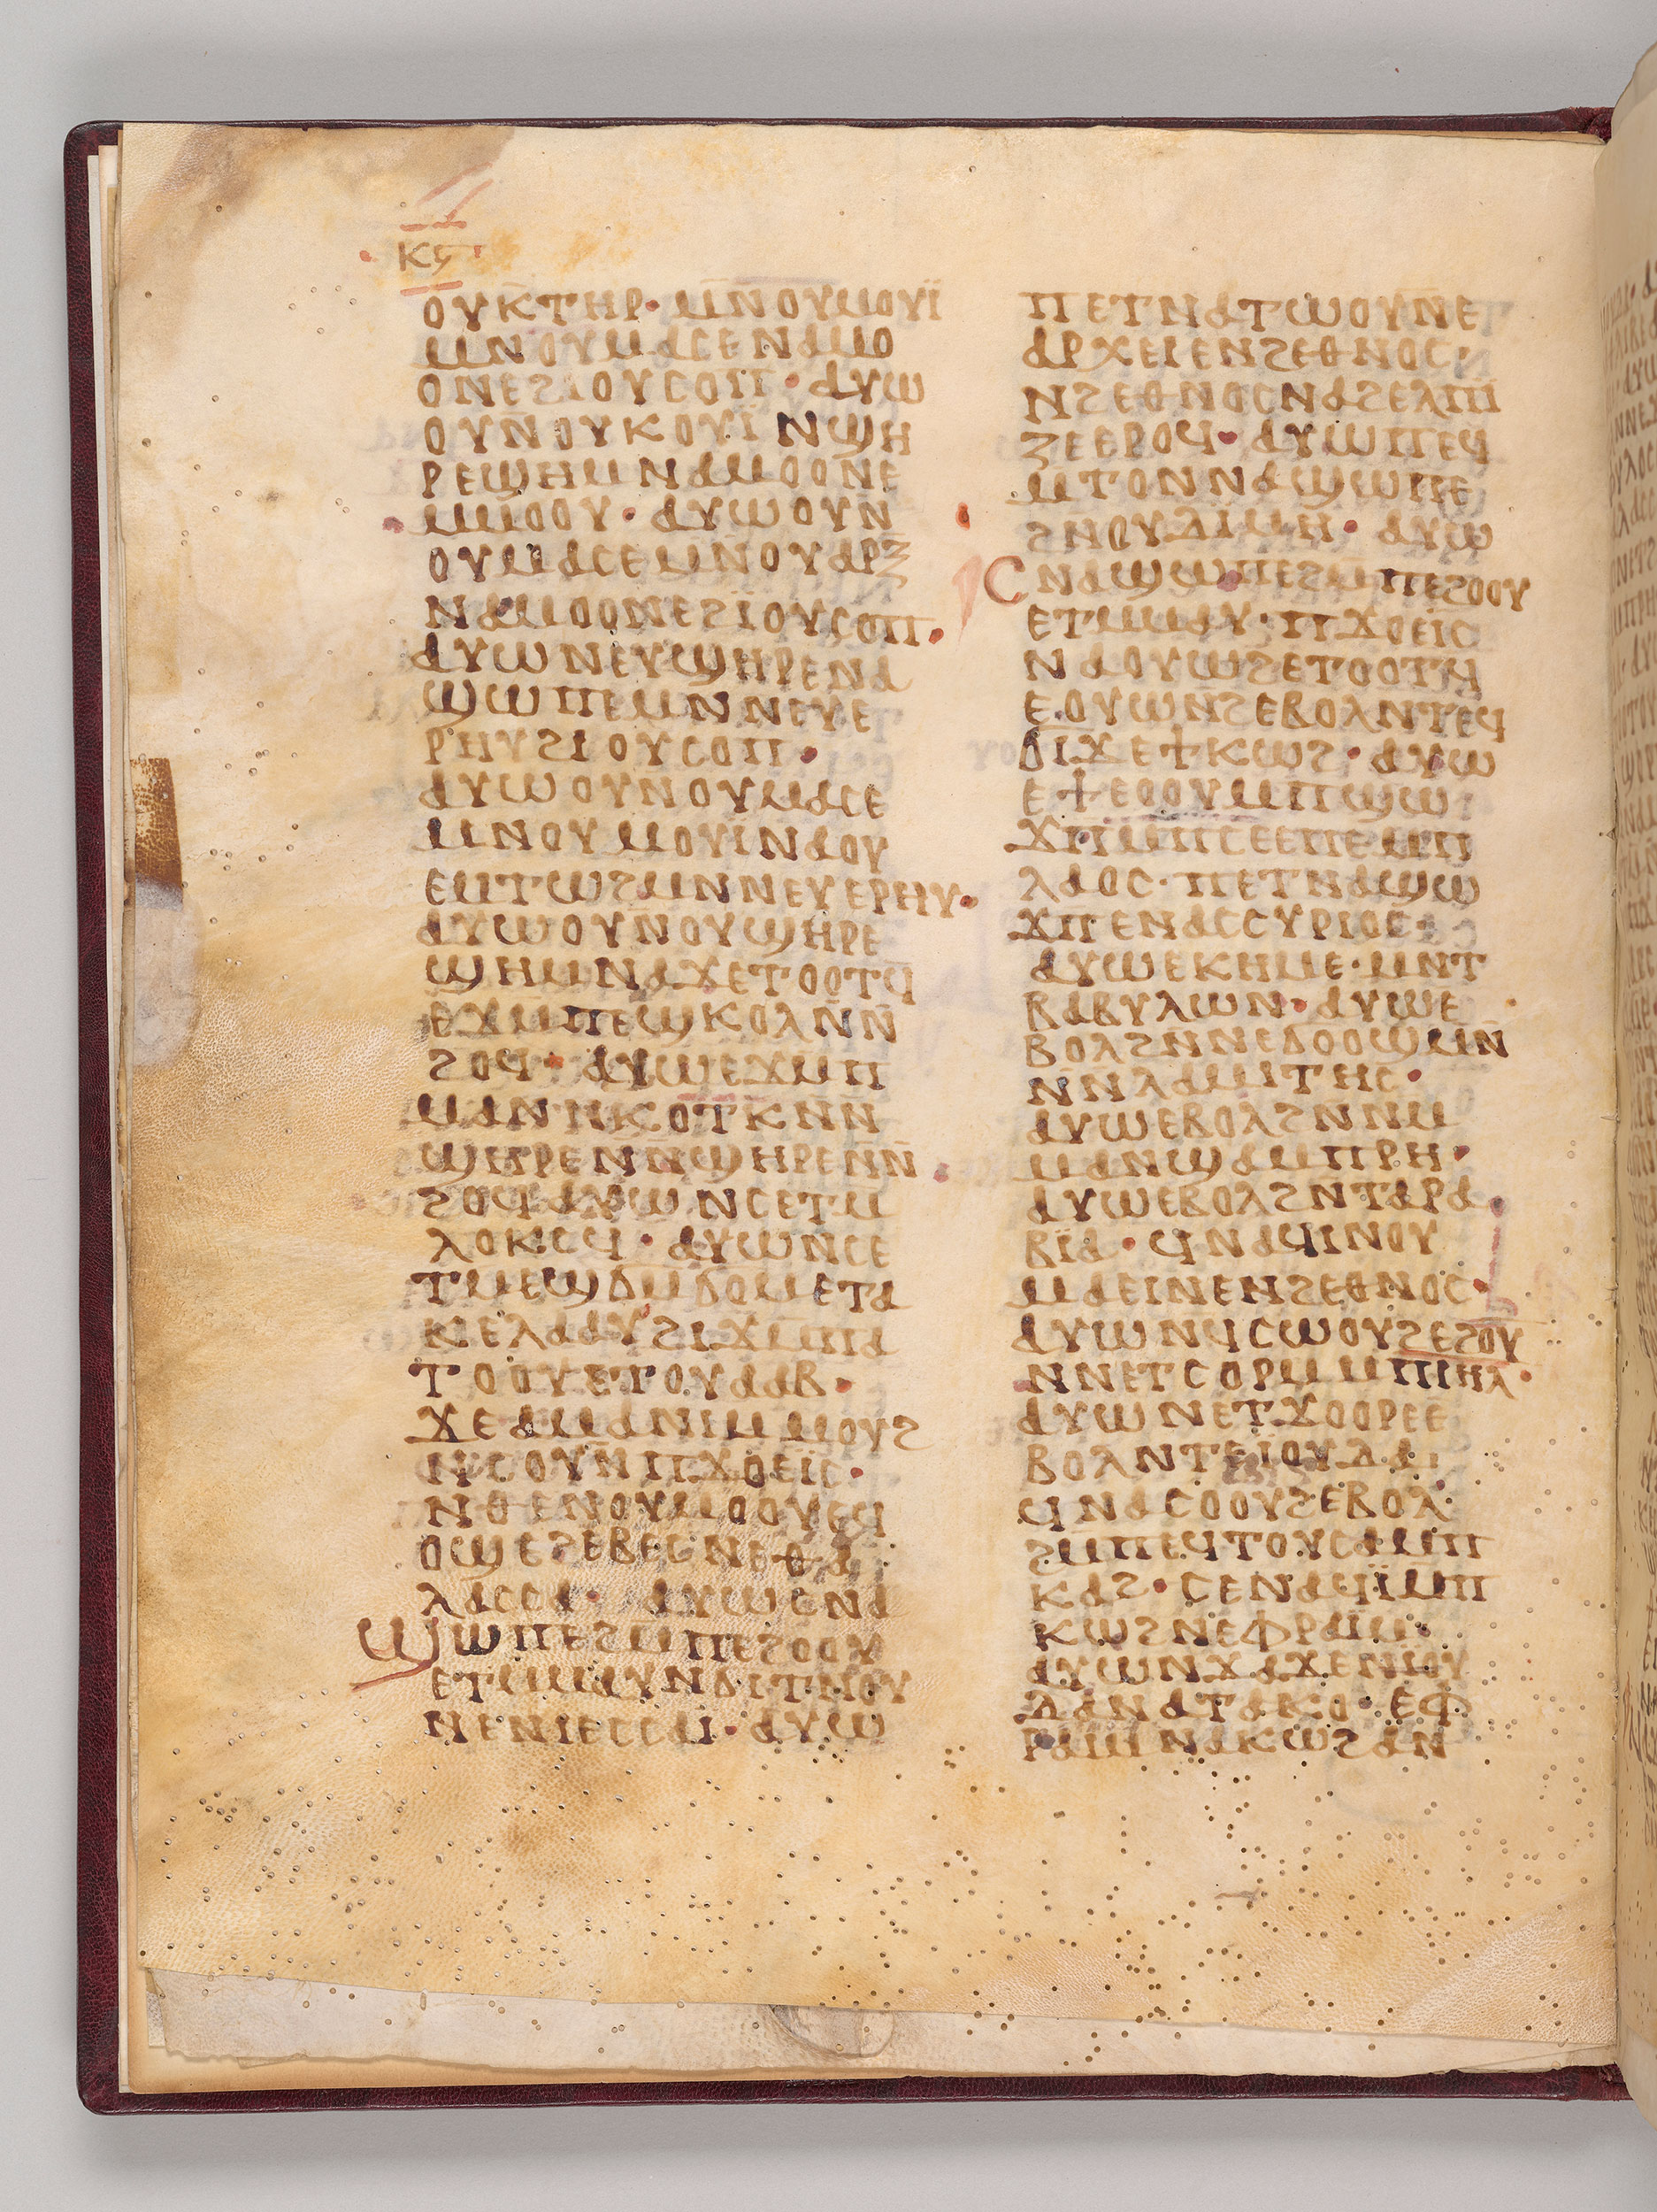 ⲕⲋ
ⲟⲩⲕⲧⲏⲣ· ⲙⲛ̄ⲟⲩⲙⲟⲩⲓ̈
ⲙⲛⲟⲩⲙⲁⲥⲉⲛⲁⲙⲟ
ⲟⲛⲉϩⲓⲟⲩⲥⲟⲡ· ⲁⲩⲱ
ⲟⲩⲛ̄ⲟⲩⲕⲟⲩⲓ̈ⲛ̄ϣⲏ
ⲣⲉϣⲏⲙⲛⲁⲙⲟⲟⲛⲉ
ⲙ̄ⲙⲟⲟⲩ· ⲁⲩⲱⲟⲩⲛ
ⲟⲩⲙⲁⲥⲉⲙⲛ̄ⲟⲩⲁⲣⲝ
ⲛⲁⲙⲟⲟⲛⲉϩⲓ̈ⲟⲩⲥⲟⲡ·
ⲁⲩⲱⲛⲉⲩϣⲏⲣⲉⲛⲁ
ϣⲱⲡⲉⲙⲛⲛⲉⲩⲉ
ⲣⲏⲩϩⲓⲟⲩⲥⲟⲡ·
ⲁⲩⲱⲟⲩⲛⲟⲩⲙⲁⲥⲉ
ⲙⲛⲟⲩⲙⲟⲩⲓⲛⲁⲟⲩ
ⲉⲙⲧⲱϩⲙⲛⲛⲉⲩⲉⲣⲏⲩ·
ⲁⲩⲱⲟⲩⲛⲟⲩϣⲏⲣⲉ
ϣⲏⲙⲛⲁϫⲉⲧⲟⲟⲧϥ̄
ⲉϫⲙ̄ⲡⲉϣⲕⲟⲗⲛ̄ⲛ̄
ϩⲟϥ· ⲁⲩⲱⲉϫⲙⲡ
ⲙⲁⲛⲛ̄ⲕⲟⲧⲕⲛ̄ⲛ̄
ϣⲏⲣⲉⲛⲛ̄ϣⲏⲣⲉⲛ̄ⲛ̄
ϩⲟϥⲁⲩⲱⲛⲥⲉⲧⲙ
ⲗⲟⲕⲥϥ· ⲁⲩⲱⲛ̄ⲥⲉ
ⲧⲙⲉϣϭⲙ̄ϭⲟⲙⲉⲧⲁ
ⲕⲉⲗⲁⲁⲩϩⲓϫⲙ̄ⲡⲁ
ⲧⲟⲟⲩⲉⲧⲟⲩⲁⲁⲃ·
ϫⲉⲁⲙⲁⲛⲓⲙⲙⲟⲩϩ
ⲛ̄ⲥⲟⲩⲛ̄ⲡϫⲟⲉⲓ̈ⲥ·
ⲛⲑⲉⲛⲟⲩⲙⲟⲟⲩⲉϥ
ⲟϣⲉϩⲉⲃⲉⲥⲛⲉⲑⲁ
ⲗⲁⲥⲥⲁ· ⲁⲩⲱⲥⲛⲁ
ϣⲱⲡⲉϩⲙ̄ⲡⲉϩⲟⲟⲩ
ⲉⲧⲙ̄ⲙⲁⲩⲛϭⲓⲧⲛⲟⲩ
ⲛⲉⲛⲓⲉⲥⲥⲁⲓ· ⲁⲩⲱ
ⲡⲉⲧⲛⲁⲧⲱⲟⲩⲛ̄ⲉ
ⲁⲣⲭⲉⲓⲉⲛϩⲉⲑⲛⲟⲥ·
ⲛϩⲉⲑⲛⲟⲥⲛⲁϩⲉⲗⲡⲓ
ⲍⲉⲉⲣⲟϥ· ⲁⲩⲱⲡⲉϥ
ⲙⲧⲟⲛⲛⲁϣⲱⲡⲉ
ϩⲛⲟⲩⲧⲓⲙⲏ· ⲁⲩⲱ
ⲥⲛⲁϣⲱⲡⲉϩⲙ̄ⲡⲉϩⲟⲟⲩ
ⲉⲧⲙ̄ⲙⲁⲩ· ⲡϫⲟⲉⲓ̈ⲥ
ⲛⲁⲟⲩⲱϩⲉⲧⲟⲟⲧϥ
ⲉⲟⲩⲱⲛ̄ϩⲉⲃⲟⲗⲛ̄ⲧⲉϥ
ϭⲓϫⲉϯⲕⲱϩ· ⲁⲩⲱ
ⲉϯⲉⲟⲟⲩⲙⲡϣⲱ
ϫⲡ̄ⲙ̄ⲡⲥⲉⲉⲡⲉⲙ̄ⲡ
ⲗⲁⲟⲥ· ⲡⲉⲧⲛⲁϣⲱ
ϫⲡ̄ⲉⲛⲁⲥⲥⲩⲣⲓⲟⲥ·
ⲁⲩⲱⲉⲕⲏⲙⲉ· ⲙⲛⲧ
ⲃⲁⲃⲩⲗⲱⲛ· ⲁⲩⲱⲉ
ⲃⲟⲗϩⲛⲛⲉϭⲟⲟϣⲙⲛ̄
ⲛ̄ⲛⲗⲁⲙⲓⲧⲏⲥ·
ⲁⲩⲱⲉⲃⲟⲗϩⲛ̄ⲛⲙ
ⲙⲁⲛϣⲁⲙ̄ⲡⲣⲏ·
ⲁⲩⲱⲉⲃⲟⲗϩⲛ̄ⲧⲁⲣⲁ
ⲃⲓ̈ⲁ· ϥⲛⲁϥⲓⲛⲟⲩ
ⲙⲁⲉⲓⲛⲉⲛϩⲉⲑⲛⲟⲥ·
ⲁⲩⲱⲛϥⲥⲱⲟⲩϩⲉϩⲟⲩ
ⲛⲛⲉⲧⲥⲟⲣⲙⲙ̄ⲡⲓⲏⲗ·
ⲁⲩⲱⲛⲉⲧϫⲟⲟⲣⲉⲉ
ⲃⲟⲗⲛⲧⲉⲓ̈ⲟⲩⲇⲁ·
ϥⲛⲁⲥⲟⲟⲩϩⲉⲃⲟⲗ
ϩⲙ̄ⲡⲉϥⲧⲟⲩⲥⲁⲙ̄ⲡ
ⲕⲁϩ· ⲥⲉⲛⲁϥⲓ̈ⲙ̄ⲡ
ⲕⲱϩⲛⲉⲫⲣⲁⲓⲙ·
ⲁⲩⲱⲛϫⲁϫⲉⲛⲓ̈ⲟⲩ
ⲇⲁⲛⲁⲧⲁⲕⲟ· ⲉⲫ
ⲣⲁⲓⲙⲛⲁⲕⲱϩⲁⲛ